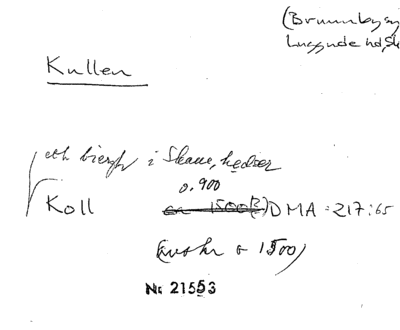 (Brunnbysn
Luggude hd, Sk
Kullen
eth biergh i Skaane, hedzer
o. 900
Koll ca 1500(?) DMA : 217:65
(avskr o 1500)
Nr 21553